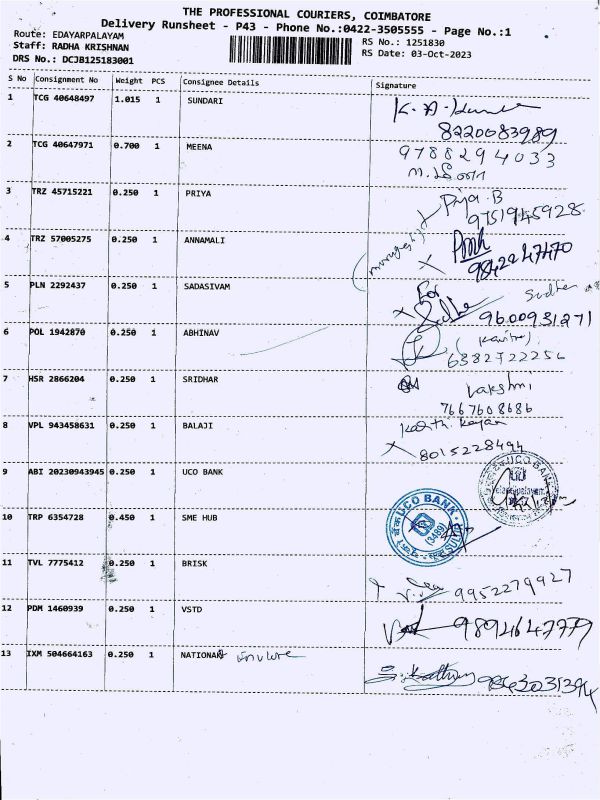 THE PROFESSIONAL COURIERS, COIMBATORE
Delivery Runsheet - P43 - Phone No.:0422-3505555 - Page No.:1
Route: EDAYARPALAYAM
Staff: RADHA KRISHNAN
DRS No.: DCJB125183001
RS No.: 1251830
RS Date: 03-Oct-2023
S No Consignment No Weight PCS Consignee Details Signature
1 TCG 40648497 1.015 1 SUNDARI
8220083989
2 TCG 40647971 0.700 1 MEENA 9788294033
3 TRZ 45715221 0.250 1 PRIYA Priya. B
9751945928
4 TRZ 57005275 0.250 1 ANNAMALI
9842247470
5 PLN 2292437 0.250 1 SADASIVAM For
9600931271
6 POL 1942870 0.250 1 ABHINAV
6382722256
7 HSR 2866204 0.250 1 SRIDHAR Lakshmi
7667608686
8 VPL 943458631 0.250 1 BALAJI Karthi Keyan
8015228494
9 ABI 20230943945 0.250 1 UCO BANK UCO BANK
10 TRP 6354728 0.450 1 SME HUB UCO BANK
(3489)
11 TVL 7775412 0.250 1 BRISK 9952279927
12 PDM 1460939 0.250 1 VSTD 9894647779
13 IXM 504664163 0.250 1 NATIONAL
9843031394